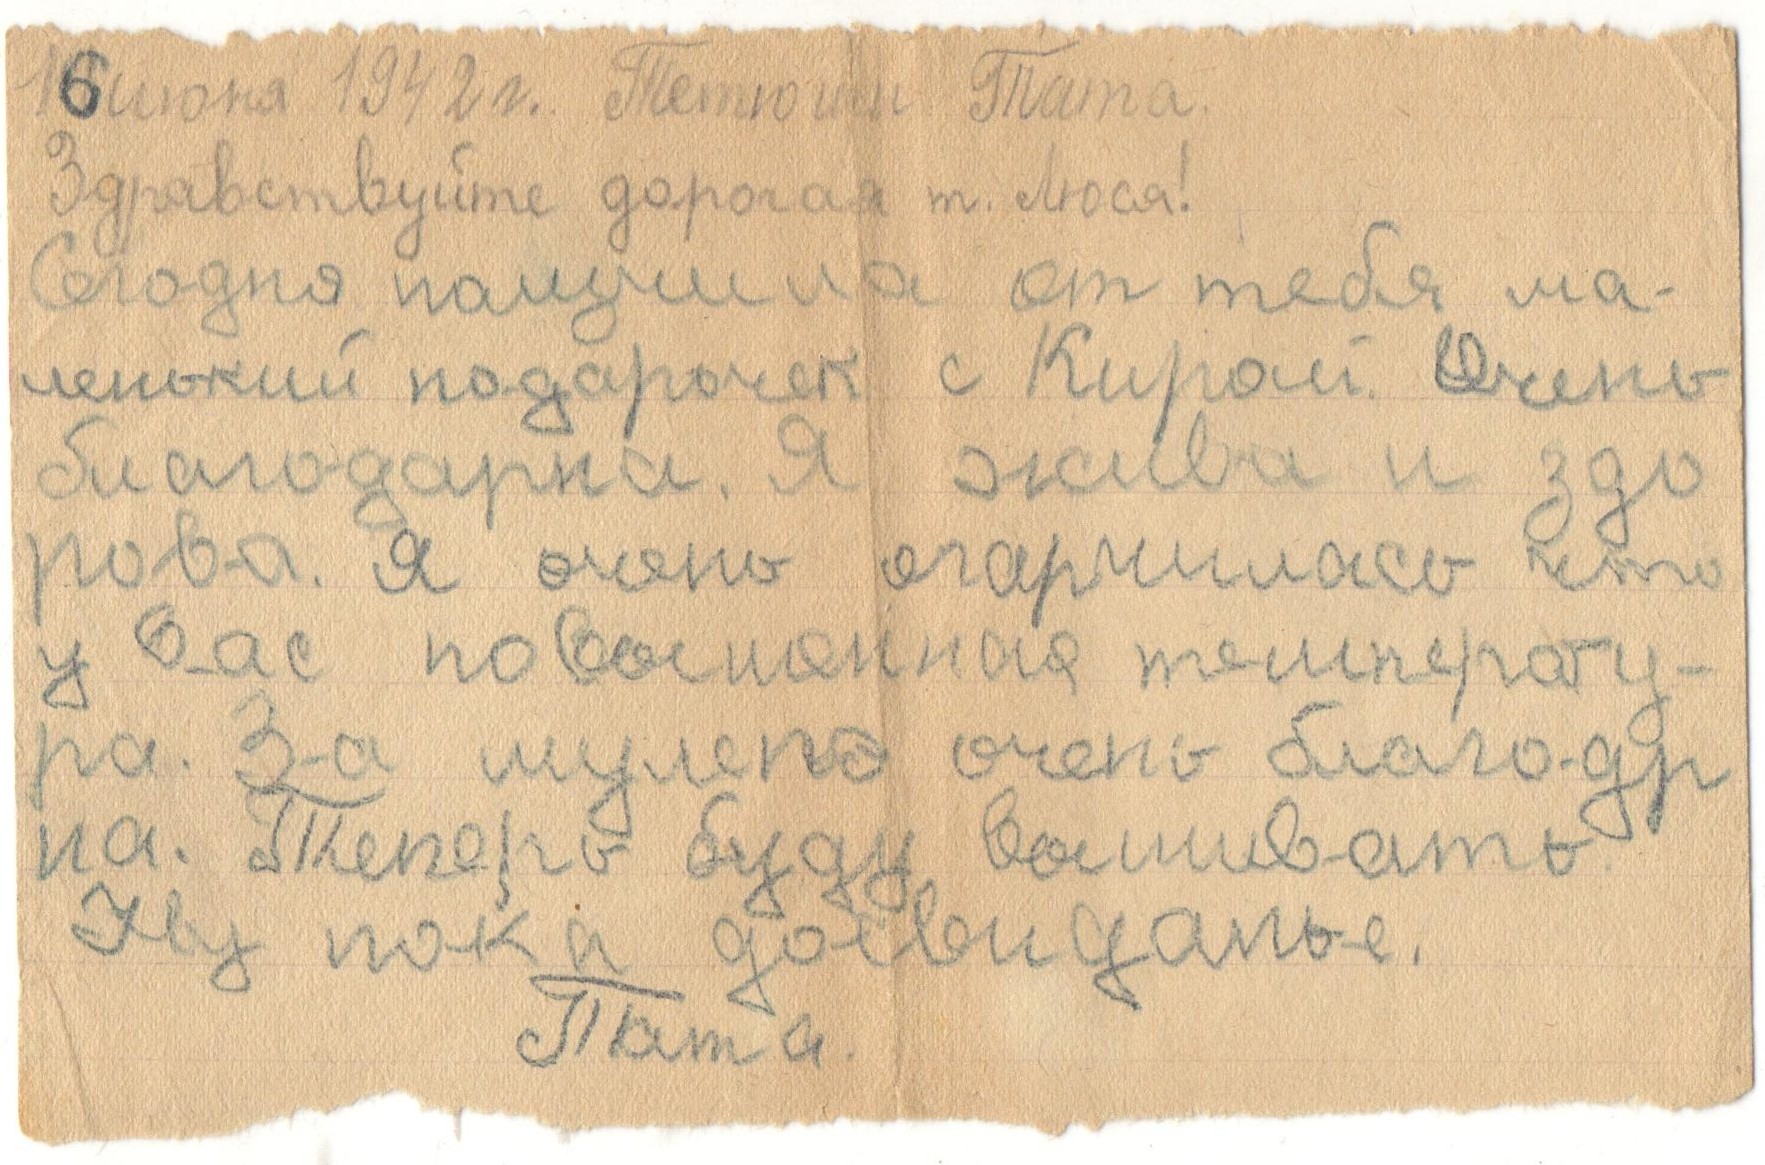 16 июня 1942 г. Тетюши Тата.
Здравствуйте дорогая т. Люся!
Сегодня получила от тебя ма-
ленький подарочек с Кирой. Очень
благодарна. Я жива и здо
рова. Я очень огарчилась что
у вас повышенная температу-
ра. За муленэ очень благодр
на. Теперь буду вышивать.
Ну пока досвиданье.
Тата.